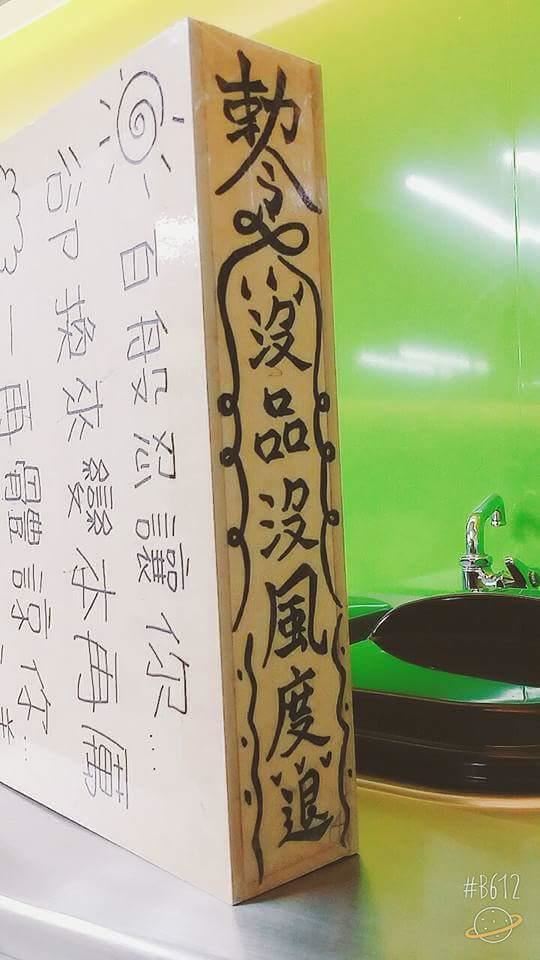 勅令
沒品沒風度退
百般忍讓你…
卻換來變本再厲
一再體諒你
#B612